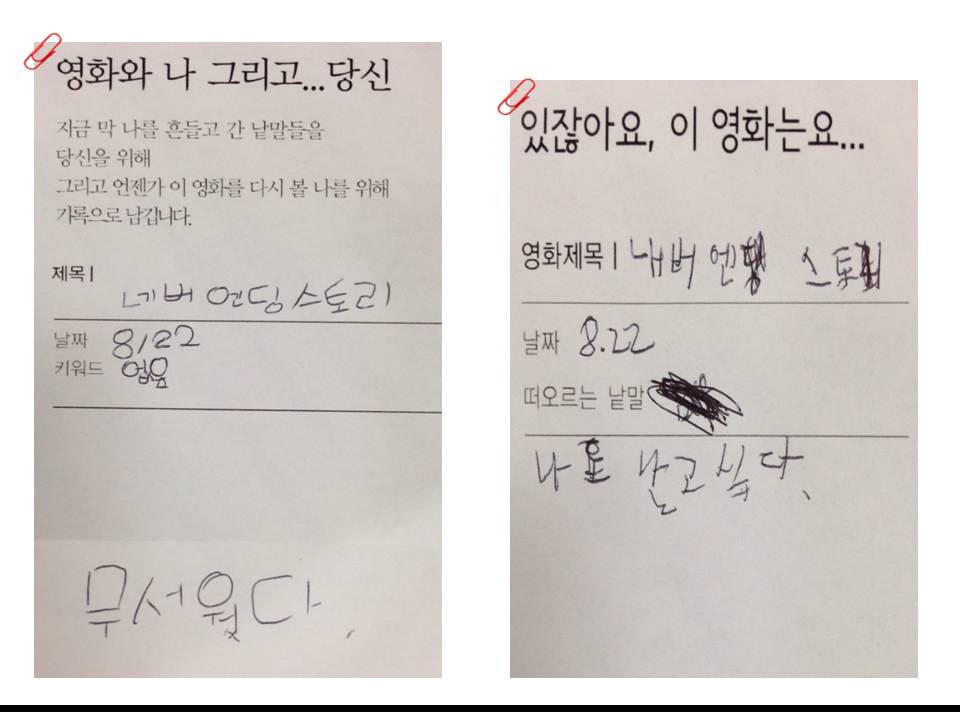 영화와 나 그리고...당신
지금 막 나를 흔들고 간 낱말들을
당신을 위해
그리고 언젠가 이 영화를 다시 볼 나를 위해
기록으로 남깁니다.
제목 | 네버엔딩스토리
날짜 8/22
키워드 없음
무서웠다.
있잖아요, 이 영화는요...
영화제목 | 내버엔딩 스토리
날짜 8.22
떠오르는 낱말
나도 날고싶다.